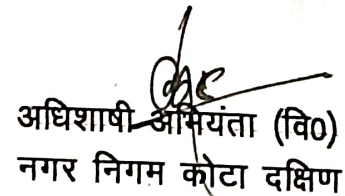 अधिशाषी अभियंता (वि0)
नगर निगम कोटा दक्षिण